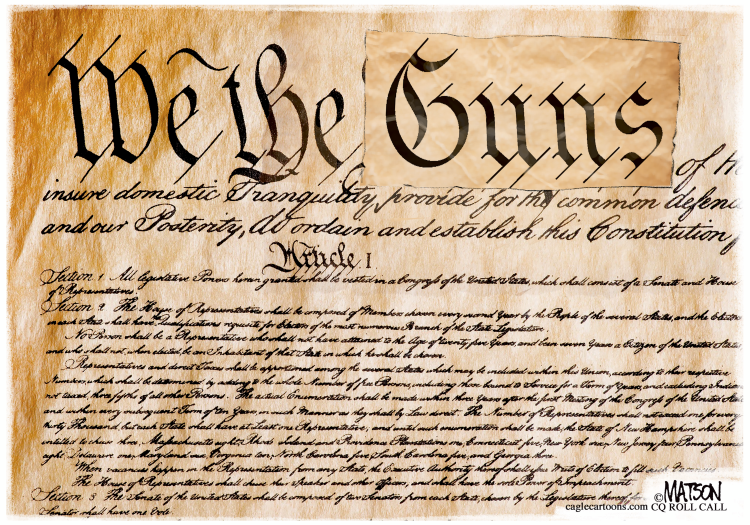 We the Guns
of the
insure domestic Tranquility, provide for the common defenc
and our Posterity, do ordain and establish this Constitution f
Article I
Section 1. All legislative Powers herein granted shall be vested in a Congress of the United States, which shall consist of a Senate and House
of Representatives.
Section 2. The House of Representatives shall be composed of Members chosen every second Year by the People of the several States, and the Electors
in each State shall have Qualifications requisite for Electors of the most numerous Branch of the State Legislature.
No Person shall be a Representative who shall not have attained to the Age of twenty five Years, and been seven Years a Citizen of the United States
and who shall not, when elected, be an Inhabitant of that State in which he shall be chosen.
Representatives and direct Taxes shall be apportioned among the several States which may be included within this Union, according to their respective
Numbers, which shall be determined by adding to the whole Number of free Persons, including those bound to Service for a Term of Years, and excluding Indians
not taxed, three fifths of all other Persons. The actual Enumeration shall be made within three Years after the first Meeting of the Congress of the United States
and within every subsequent Term of ten Years, in such Manner as they shall by Law direct. The Number of Representatives shall not exceed one for every
thirty Thousand, but each State shall have at Least one Representative; and until such enumeration shall be made, the State of New Hampshire shall be
entitled to chuse three, Massachusetts eight, Rhode Island and Providence Plantations one, Connecticut five, New York six, New Jersey four, Pennsylvania
eight, Delaware one, Maryland six, Virginia ten, North Carolina five, South Carolina five, and Georgia three.
When vacancies happen in the Representation from any State, the Executive Authority thereof shall issue Writs of Election to fill such Vacancies.
The House of Representatives shall chuse their Speaker and other Officers; and shall have the sole Power of Impeachment.
Section 3. The Senate of the United States shall be composed of two Senators from each State, chosen by the Legislature thereof for
Senator shall have one Vote.
©MATSON
caglecartoons.com CQ ROLL CALL